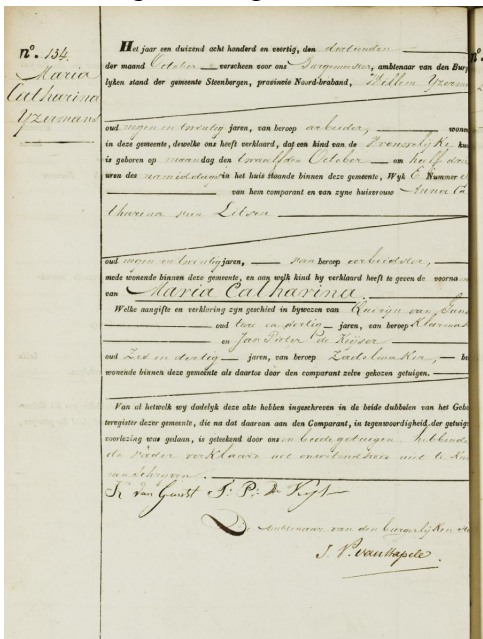 n.º 134.
Maria
Catharina
Yzermans
Het jaar een duizend acht honderd en veertig, den dertienden
der maand October verscheen voor ons Burgemeester, ambtenaar van den Burg
lyken stand der gemeente Steenbergen, provincie Noord-braband, Willem Yzerm
oud negen en twintig jaren, van beroep arbeider, wonen
in deze gemeente, dewelke ons heeft verklaard, dat een kind van de Vrouwelijke kun
is geboren op maandag den twaalfden October om half
uren des namiddags in het huis staande binnen deze gemeente, Wyk E Nummer
van hem comparant en van zyne huisvrouw Anna Ca
tharina van
oud negen en twintig jaren, van beroep arbeidster,
mede wonende binnen deze gemeente, en aan welk kind hy verklaard heeft te geven de voorna
van Maria Catharina
Welke aangifte en verklaring zyn geschied in bywezen van van
oud twee en dertig jaren, van beroep
en Jan Pieter de
oud Zes en dertig jaren, van beroep Zadelmaker, be
wonende binnen deze gemeente als daartoe door den comparant zelve gekozen getuigen.
Van al hetwelk wy dadelyk deze akte hebben ingeschreven in de beide dubbelen van het Gebo
teregister dezer gemeente, die na dat daaraan aan den Comparant, in tegenwoordigheid der getuige
voorlezing was gedaan, is geteekend door ons en beide getuigen hebbende
de vader verklaard uit onwetendheid niet te kun
nen schryven.
van P: De
De Ambtenaar van den burgerlyken sta